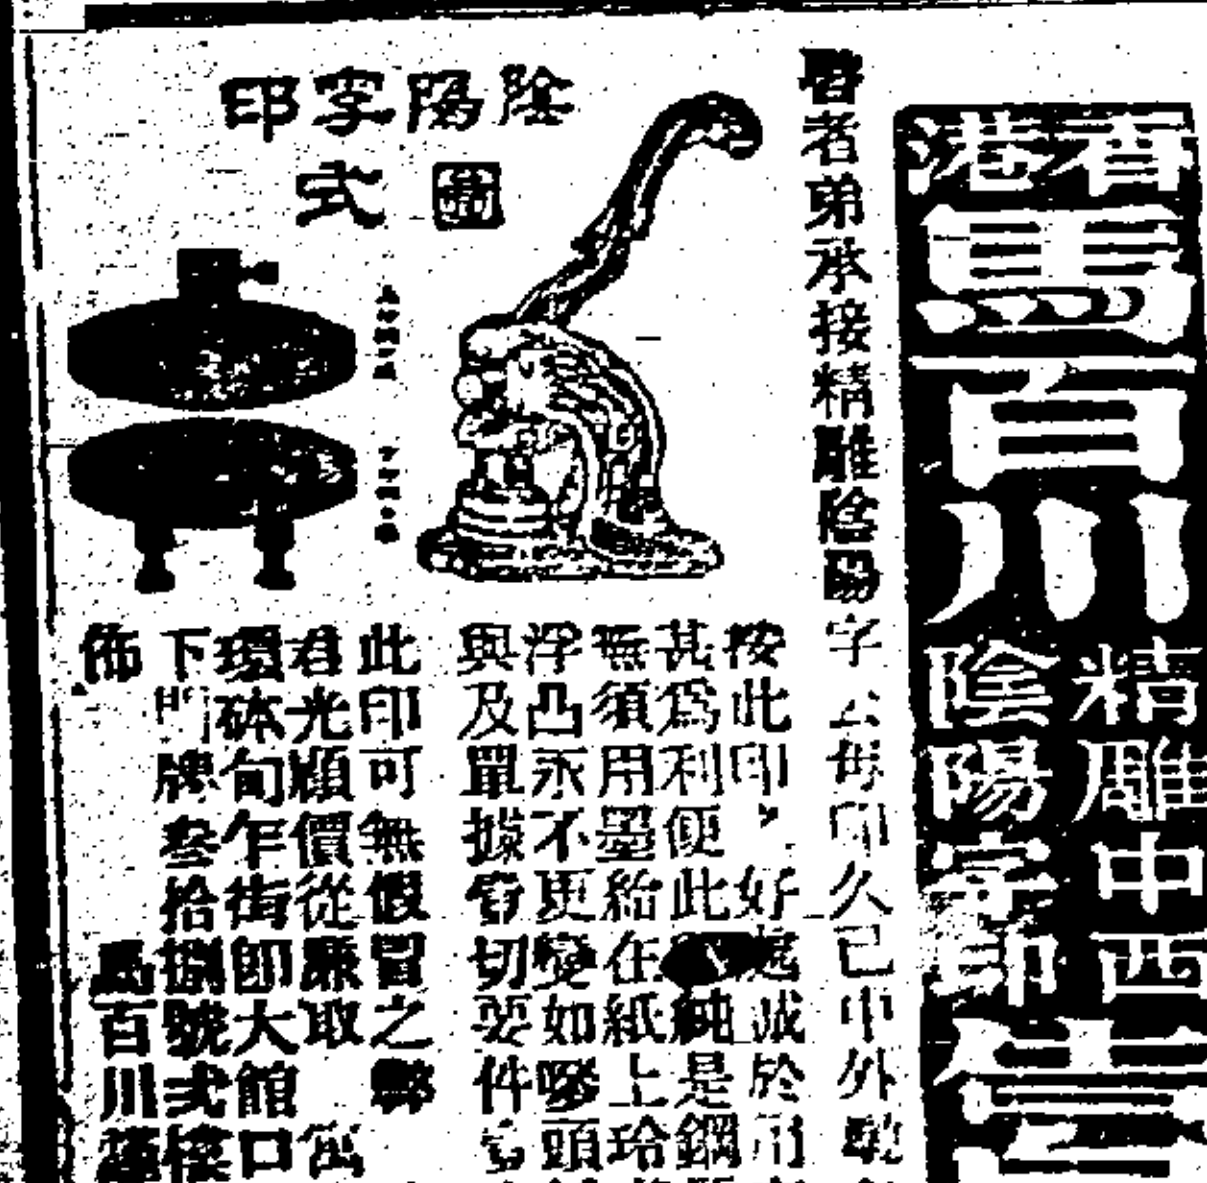 香港
馬百川
精雕中西
陰陽字印
啓者弟承接精雕陰陽字公母印久已中外馳
陰陽字印
圖式
按此印 好處誠於用
甚為利便此 純是鋼
無須用墨給在紙上玲
浮凸永不更變如嘜頭
與及單據 切要件
此印可無假冒之弊
君光顧價從廉取 寓
環砵甸乍街即大館口
下門牌叁拾捌號弍樓
佈 馬百川謹